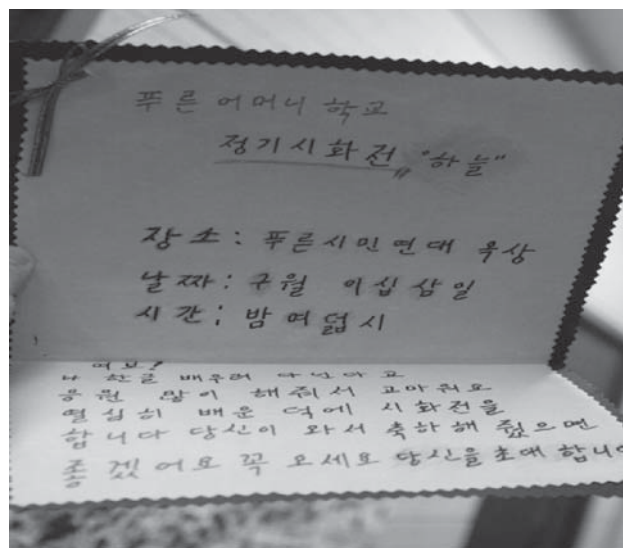 푸른어머니학교
정기시화전 "하늘"
장소: 푸른시민연대 옥상
날짜: 구월 이십삼일
시간: 밤여덟시
여보!
나 한글 배우러 다닌다고
응원 많이 해줘서 고마워요
열심히 배운 덕에 시화전을
합니다 당신이 와서 축하해 줬으면
좋겠어요 꼭 오세요 당신을 초대 합니다